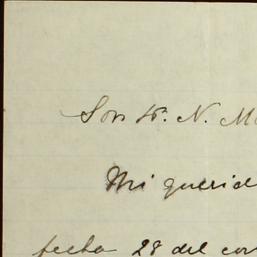 Sor. W. N. M
Mi querid
fecha 28 del cor